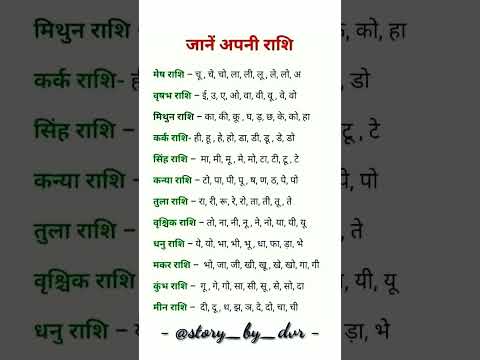 जानें अपनी राशि
मेष राशि – चू , चे, चो, ला, ली, लू , ले, लो, अ
वृषभ राशि – ई, उ, ए, ओ, वा, वी, वू , वे, वो
मिथुन राशि – का, की, कू , घ, ड़, छ, के, को, हा
कर्क राशि- ही, हू , हे, हो, डा, डी, डू , डे, डो
सिंह राशि – मा, मी, मू , मे, मो, टा, टी, टू , टे
कन्या राशि – टो, पा, पी, पू , ष, ण, ठ, पे, पो
तुला राशि – रा, री, रू, रे, रो, ता, ती, तू , ते
वृश्चिक राशि – तो, ना, नी, नू , ने, नो, या, यी, यू
धनु राशि – ये, यो, भा, भी, भू , धा, फा, ड़ा, भे
मकर राशि – भो, जा, जी, खी, खू , खे, खो, गा, गी
कुंभ राशि – गू , गे, गो, सा, सी, सू , से, सो, दा
मीन राशि – दी, दू , थ, झ, ञ, दे, दो, चा, ची
- @story_by_dvr -
मिथुन राशि
कर्क राशि- ही
सिंह राशि
कन्या राशि
तुला राशि
वृश्चिक राशि
धनु राशि –
, को, हा
डो
टू , टे
, पो
, ते
, यी, यू
ड़ा, भे